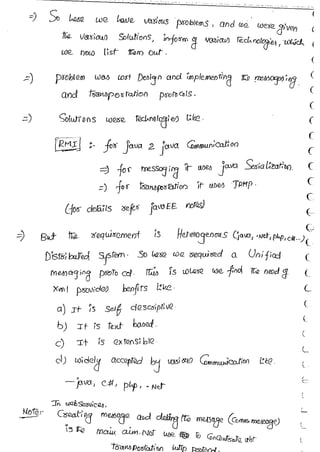 =) So here we have various problems, and we were given
the various Solutions, inform of various Technologies, which
we now list them out.
=) problem was lost Design and implementing the messaging
and Transportation protocols.
=) Solutions were Technologies like.
RMI :- for java 2 java Communication
=) for messaging it uses java Serialization.
=) for transportation it uses JPMP.
(for details refer javaEE notes)
=) But the requirement is Heterogenous (java, .net, php, c#..)
Distributed System. So here we required a Unified
messaging protocol. This is where we find the need of
Xml provides benfits like.
a) It is Self descriptive
b) It is text based.
c) It is extensible
d) widely accepted by various Communication like.
- java, c#, php, .Net
In webservices.
Note: Creating message and the message (Comm message)
is the main aim. Not use to Concentrate not
Transportation http protocol.